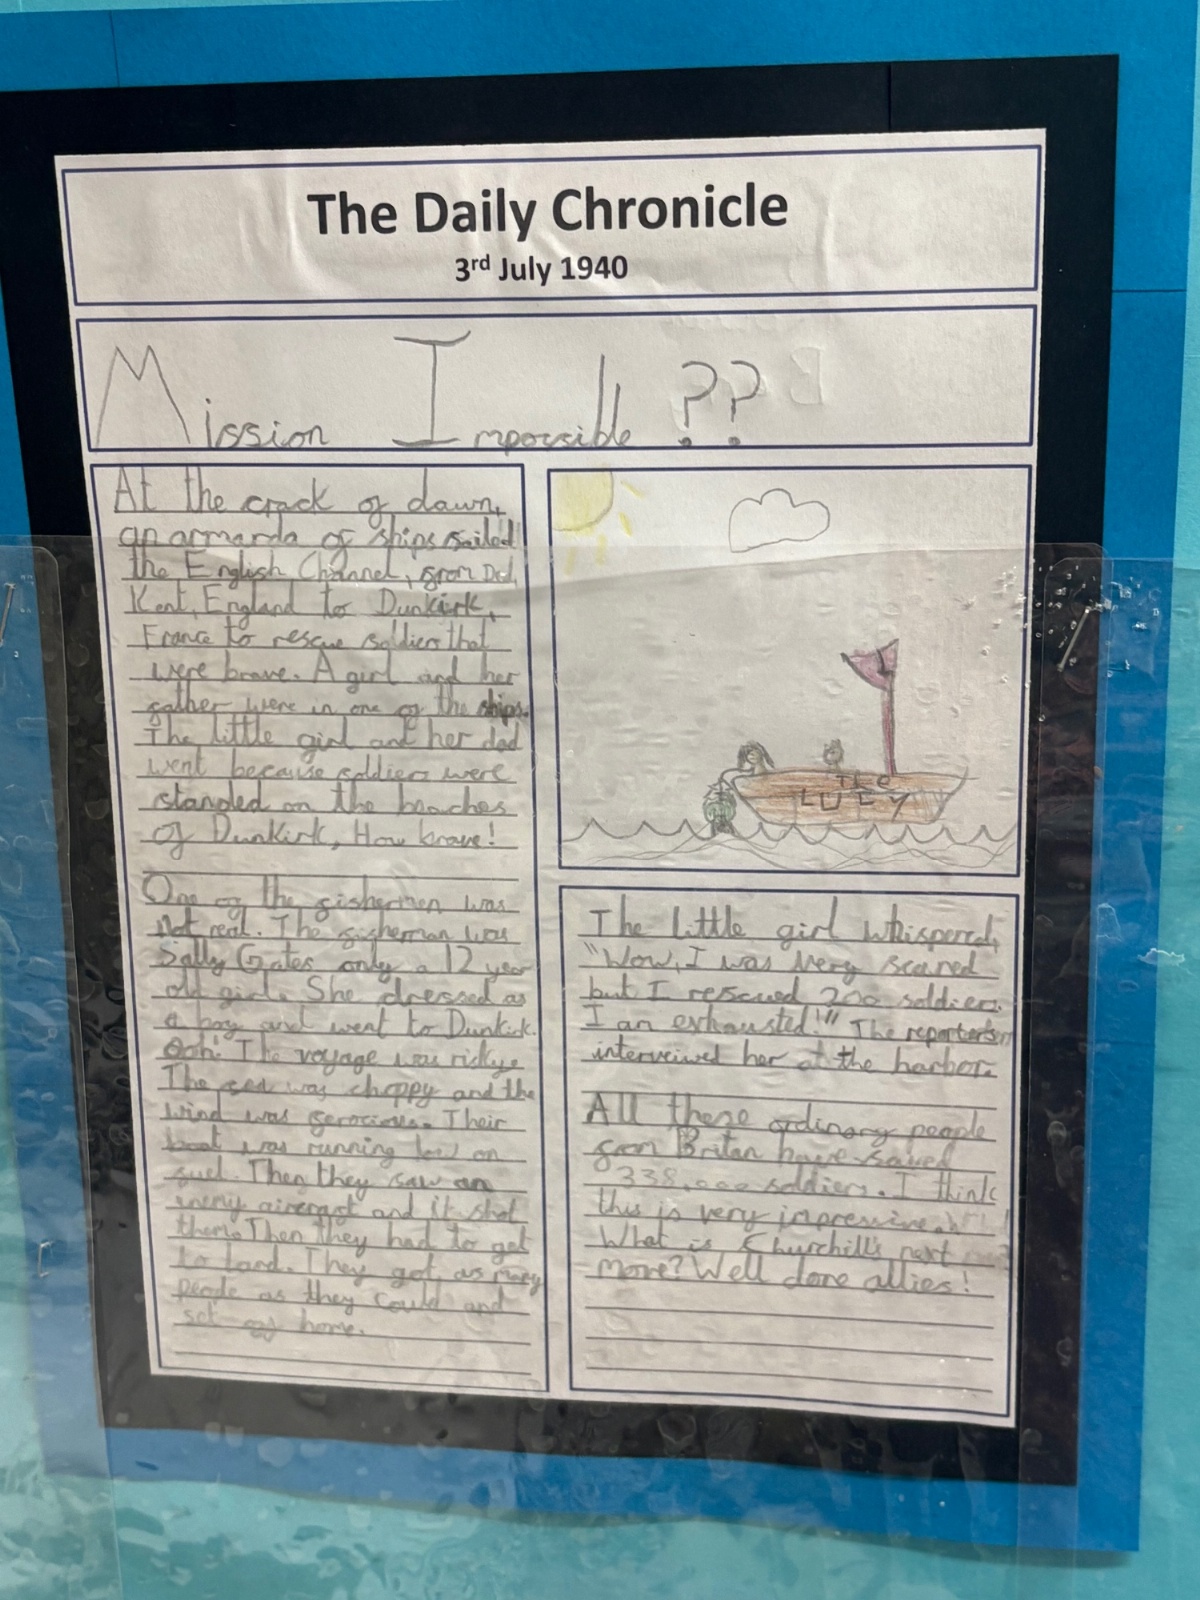 The Daily Chronicle
3rd July 1940
Mission Impossible ??
At the crack of dawn,
an armarda of ships sailed
the English Channel, from
Kent, England to Dunkirk,
France to rescue soldiers that
were brave. A girl and her
father were in one of the ships.
The little girl and her dad
went because soldiers were
standed on the beaches
of Dunkirk, How brave!
One of the fishermen was
not real. The fisherman was
Sally Gates only a 12 year
old girl. She dressed as
a boy and went to Dunkirk.
Ooh! The voyage was
The sea was choppy and the
wind was ferocious. Their
boat was running low on
fuel. Then they saw an
enemy aircraft and it shot
them. Then they had to get
to land. They got as many
people as they could and
set off home.
THE
LUCY
The little girl whispered,
"Wow, I was very scared
but I rescued 200 soldiers.
I am exhausted!" The reporters
interveiwed her at the harbor.
All these ordinary people
from Britan have saved
338,000 soldiers. I think
this is very impressive.
What is Churchill's next
move? Well done allies!